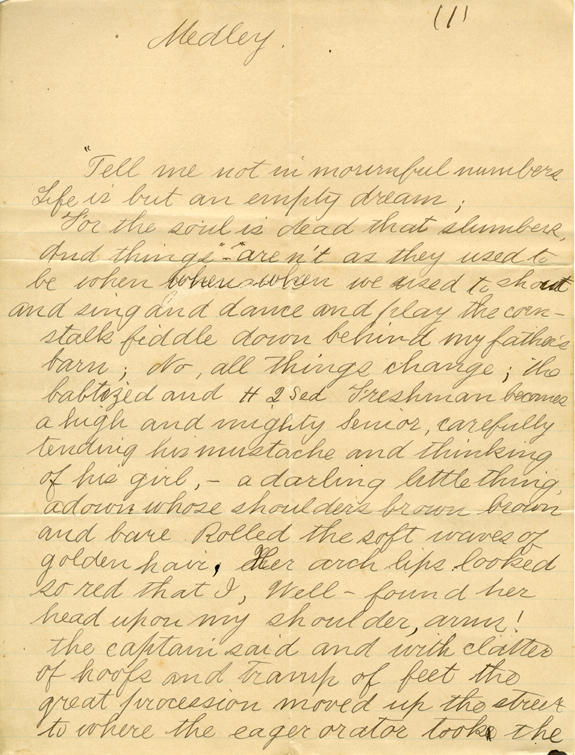 (1)
Medley.
"Tell me not in mournful numbers
Life is but an empty dream;
For the soul is dead that slumbers,
And things"-"aren't as they used to
be when when - when we used to shout
and sing and dance and play the corn-
stalk fiddle down behind my father's
barn; No, all things change; the
babtized and H2Sed Freshman becomes
a high and mighty Senior, carefully
tending his mustache and thinking
of his girl, - a darling little thing,
adown whose shoulders brown brown
and bare Rolled the soft waves of
golden hair, Her arch lips looked
so red that I, Well - found her
head upon my shoulder, arms!
the captain said and with clatter
of hoofs and tramp of feet the
great procession moved up the street
to where the eager orator took the